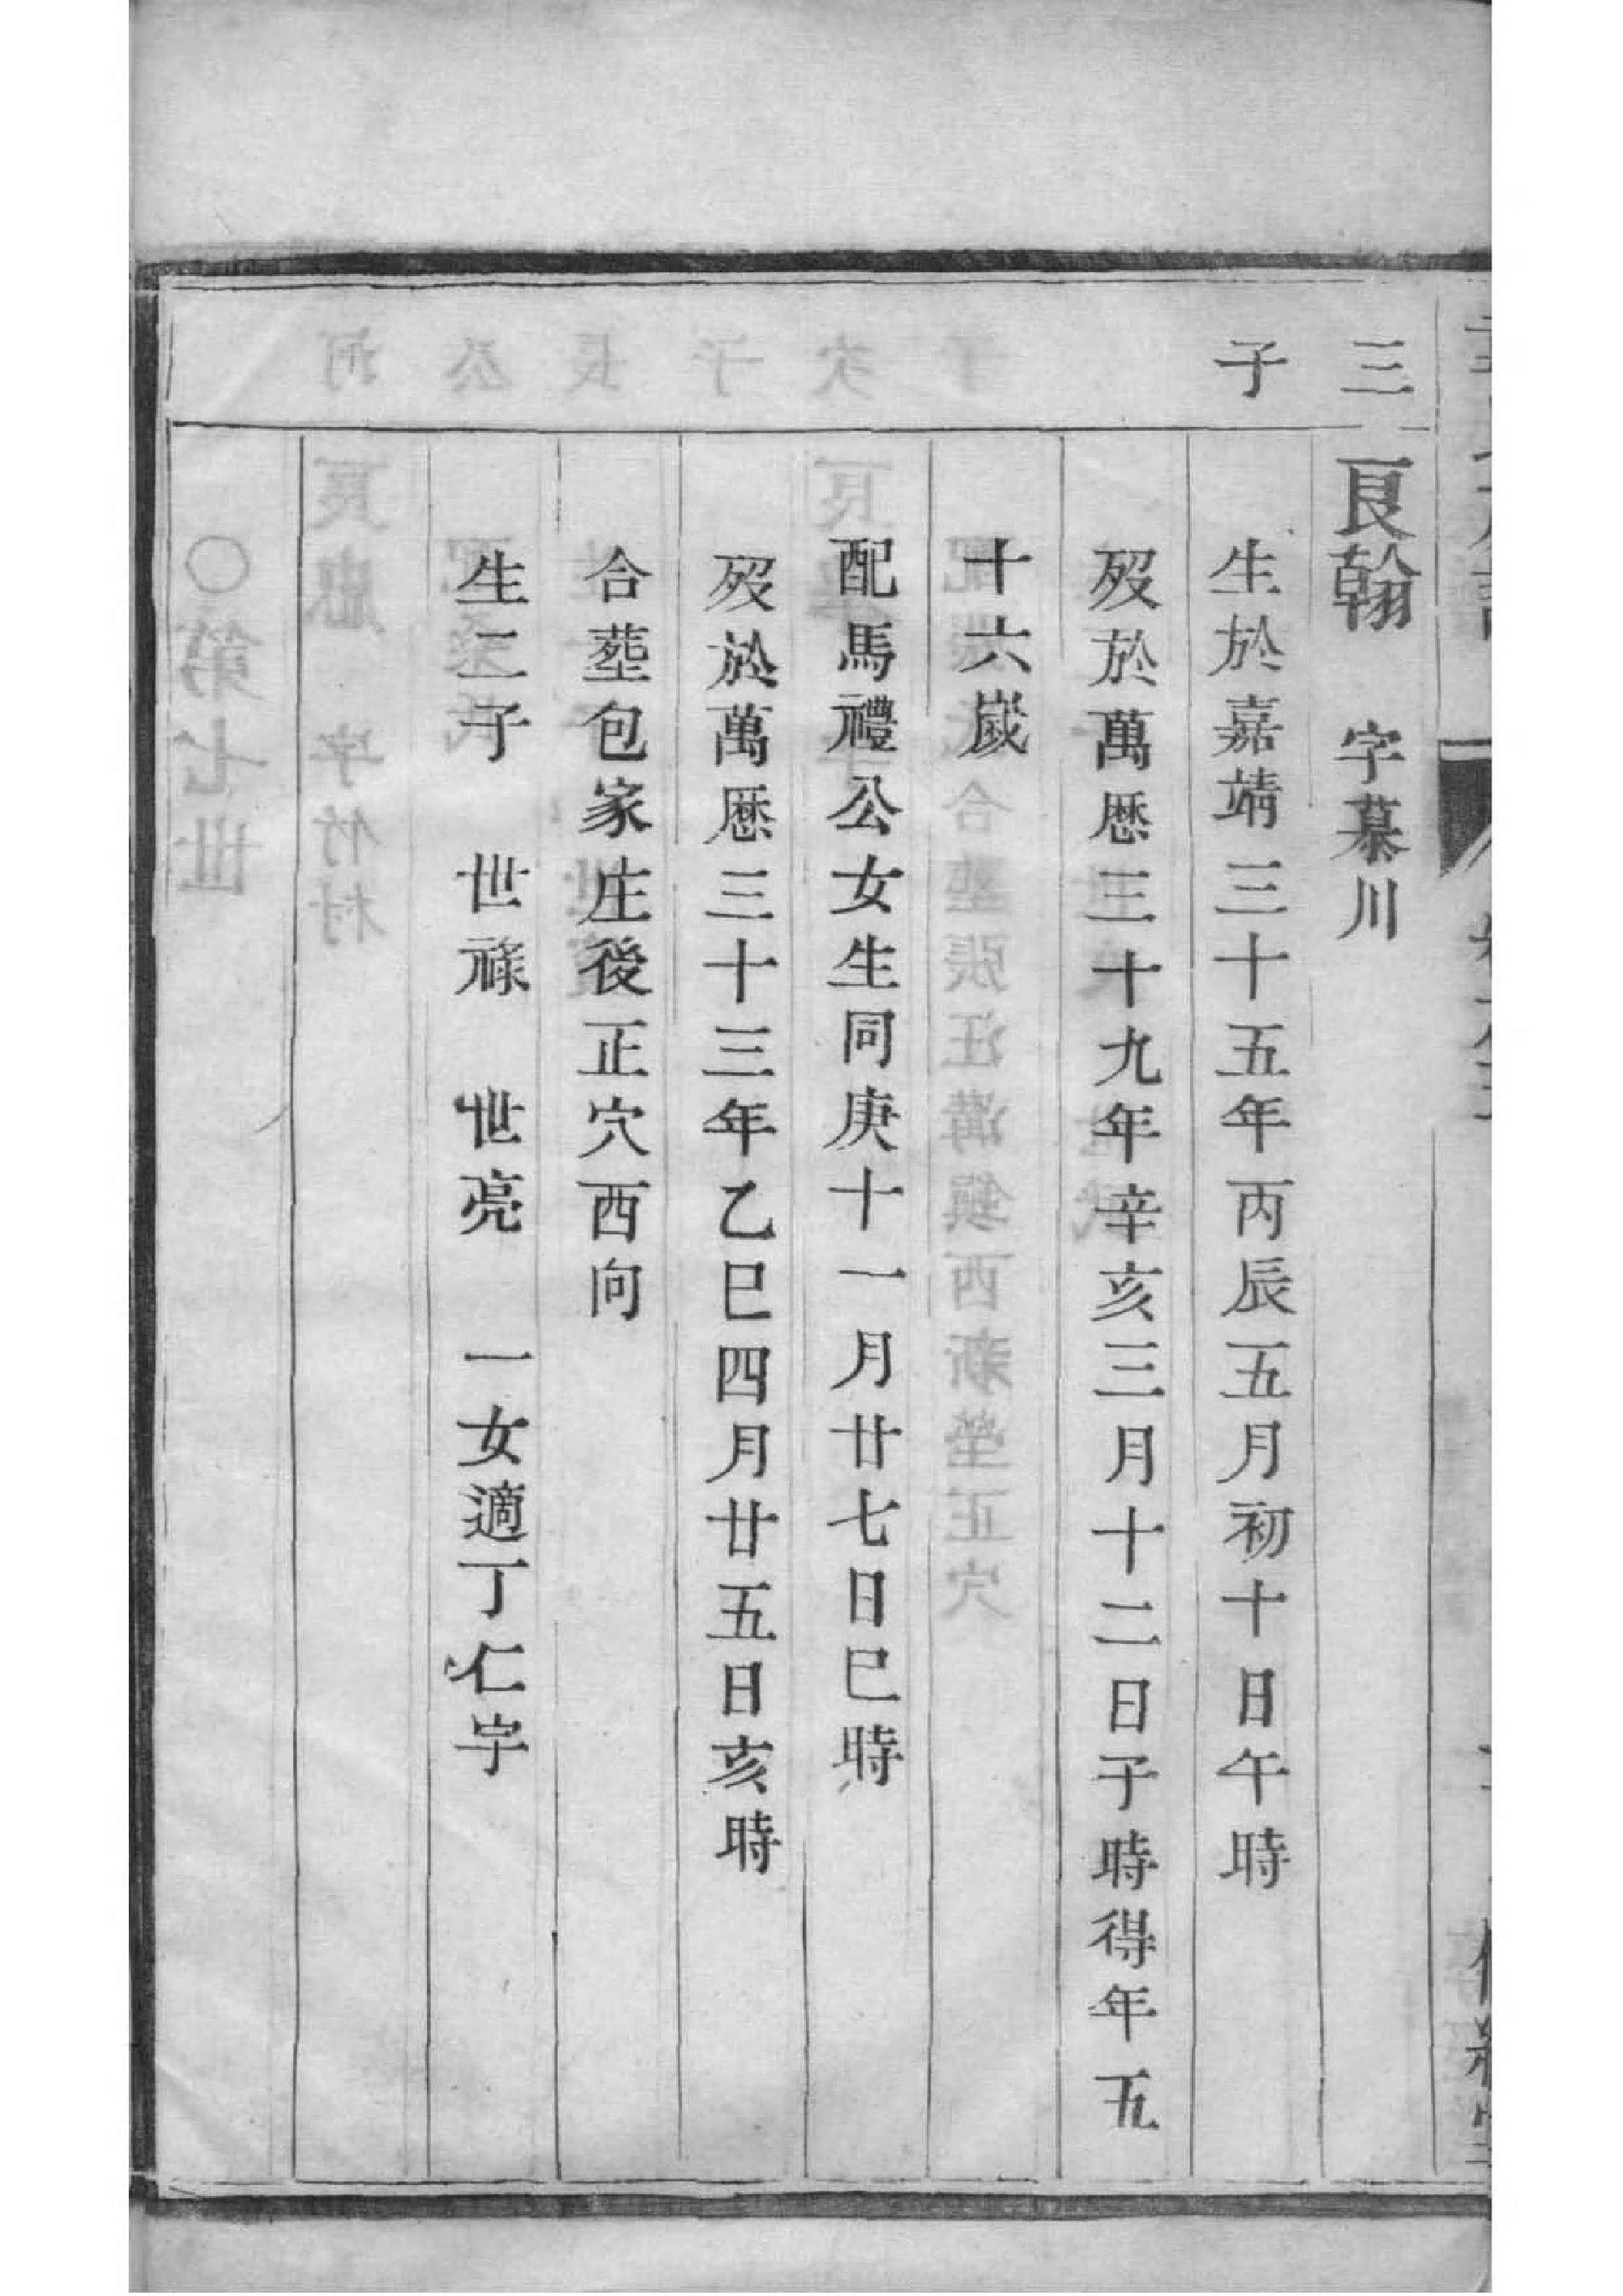 三子
良翰 字慕川
生於嘉靖三十五年丙辰五月初十日午時
歿於萬厯三十九年辛亥三月十二日子時得年五
十六嵗
配馬禮公女生同庚十一月廿七日巳時
歿於萬厯三十三年乙巳四月廿五日亥時
合塟包家庄後正穴西向
生二子 世祿 世亮 一女適丁仁宇